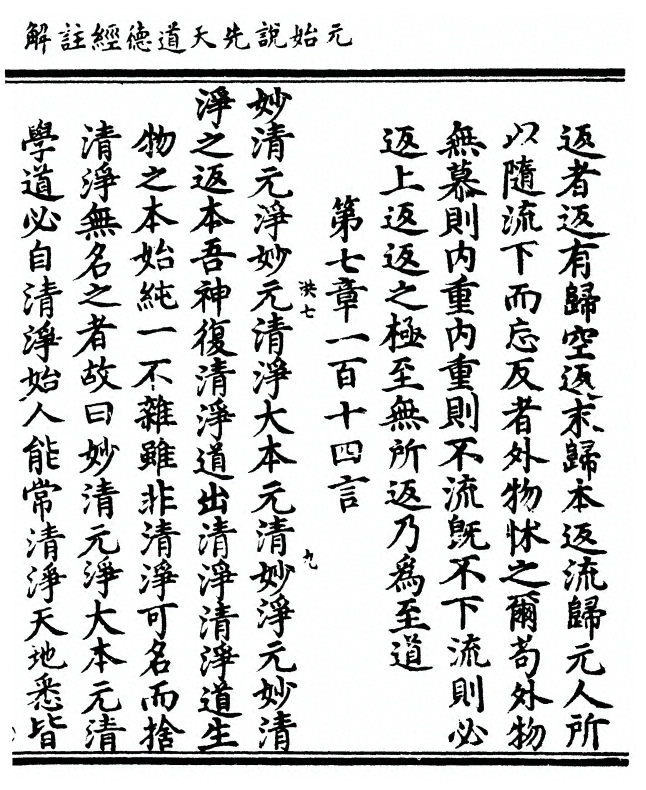 元始說先天道德經註解
返者返有歸空返末歸本返流歸元人所
以隨流下而忘反者外物怵之爾苟外物
無慕則内重内重則不流旣不下流則必
返上返返之極至無所返乃爲至道
第七章一百十四言
洪七
九
妙清元淨妙元清淨大本元清妙淨元妙清
淨之返本吾神復清淨道出清淨清淨道生
物之本始純一不雜雖非清淨可名而捨
清淨無名之者故曰妙清元淨大本元清
學道必自清淨始人能常清淨天地悉皆